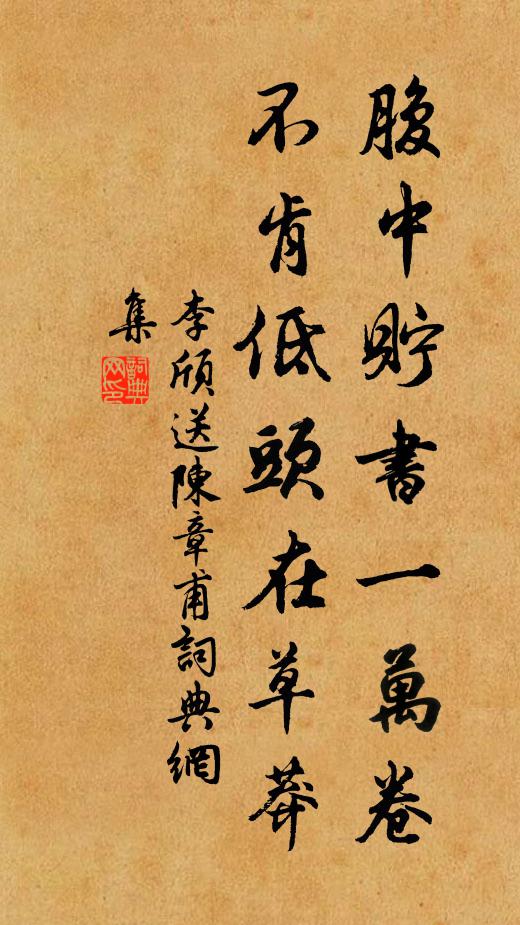 腹中貯書一萬卷
不肯低頭在草莽
李頎送陳章甫詞典網
集
詞典
网印